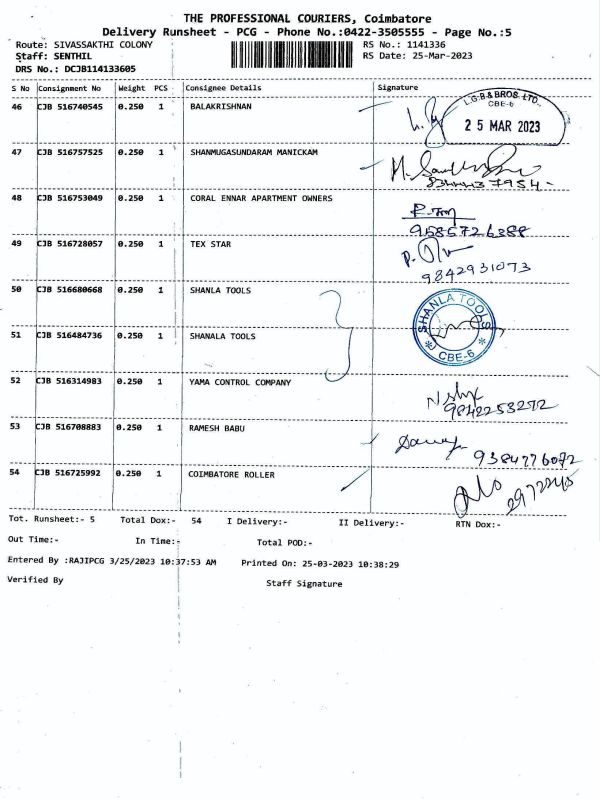 THE PROFESSIONAL COURIERS, Coimbatore
Delivery Runsheet - PCG - Phone No.:0422-3505555 - Page No.:5
Route: SIVASSAKTHI COLONY RS No.: 1141336
Staff: SENTHIL RS Date: 25-Mar-2023
DRS No.: DCJB114133605
S No Consignment No Weight PCS Consignee Details Signature
46 CJB 516740545 0.250 1 BALAKRISHNAN
L.G.B & BROS. LTD.,
CBE-6
25 MAR 2023
47 CJB 516757525 0.250 1 SHANMUGASUNDARAM MANICKAM
48 CJB 516753049 0.250 1 CORAL ENNAR APARTMENT OWNERS
9585726388
49 CJB 516728057 0.250 1 TEX STAR
9842931073
50 CJB 516680668 0.250 1 SHANLA TOOLS
SHANLA TOOLS
* CBE-6 *
51 CJB 516484736 0.250 1 SHANALA TOOLS
52 CJB 516314983 0.250 1 YAMA CONTROL COMPANY
9842253272
53 CJB 516708883 0.250 1 RAMESH BABU
9384776072
54 CJB 516725992 0.250 1 COIMBATORE ROLLER
Tot. Runsheet:- 5 Total Dox:- 54 I Delivery:- II Delivery:- RTN Dox:-
Out Time:- In Time:- Total POD:-
Entered By :RAJIPCG 3/25/2023 10:37:53 AM Printed On: 25-03-2023 10:38:29
Verified By Staff Signature